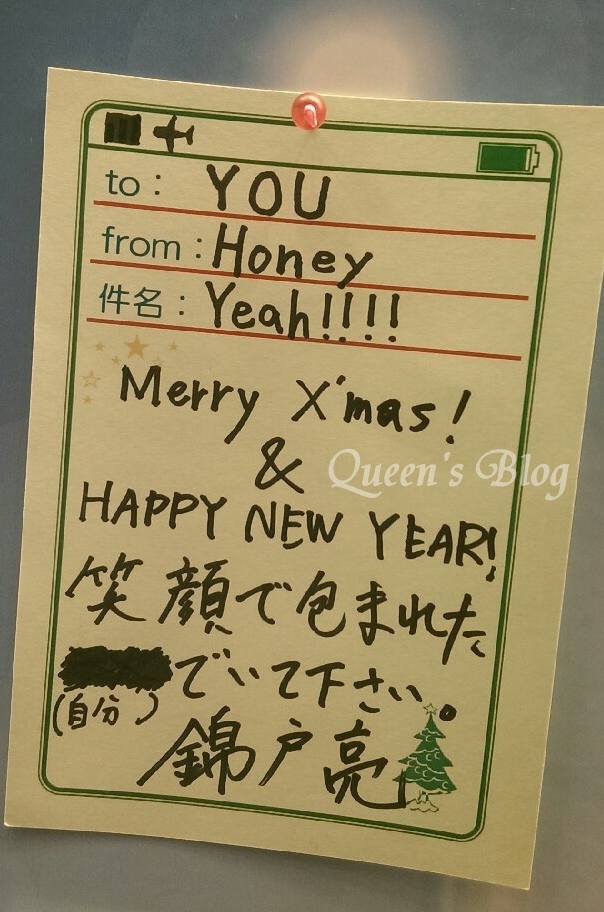 to : YOU
from : Honey
件名 : Yeah!!!!
Merry X'mas!
&
Queen's Blog
HAPPY NEW YEAR!
笑顔で包まれた
でいて下さい。
(自分)
錦戸亮